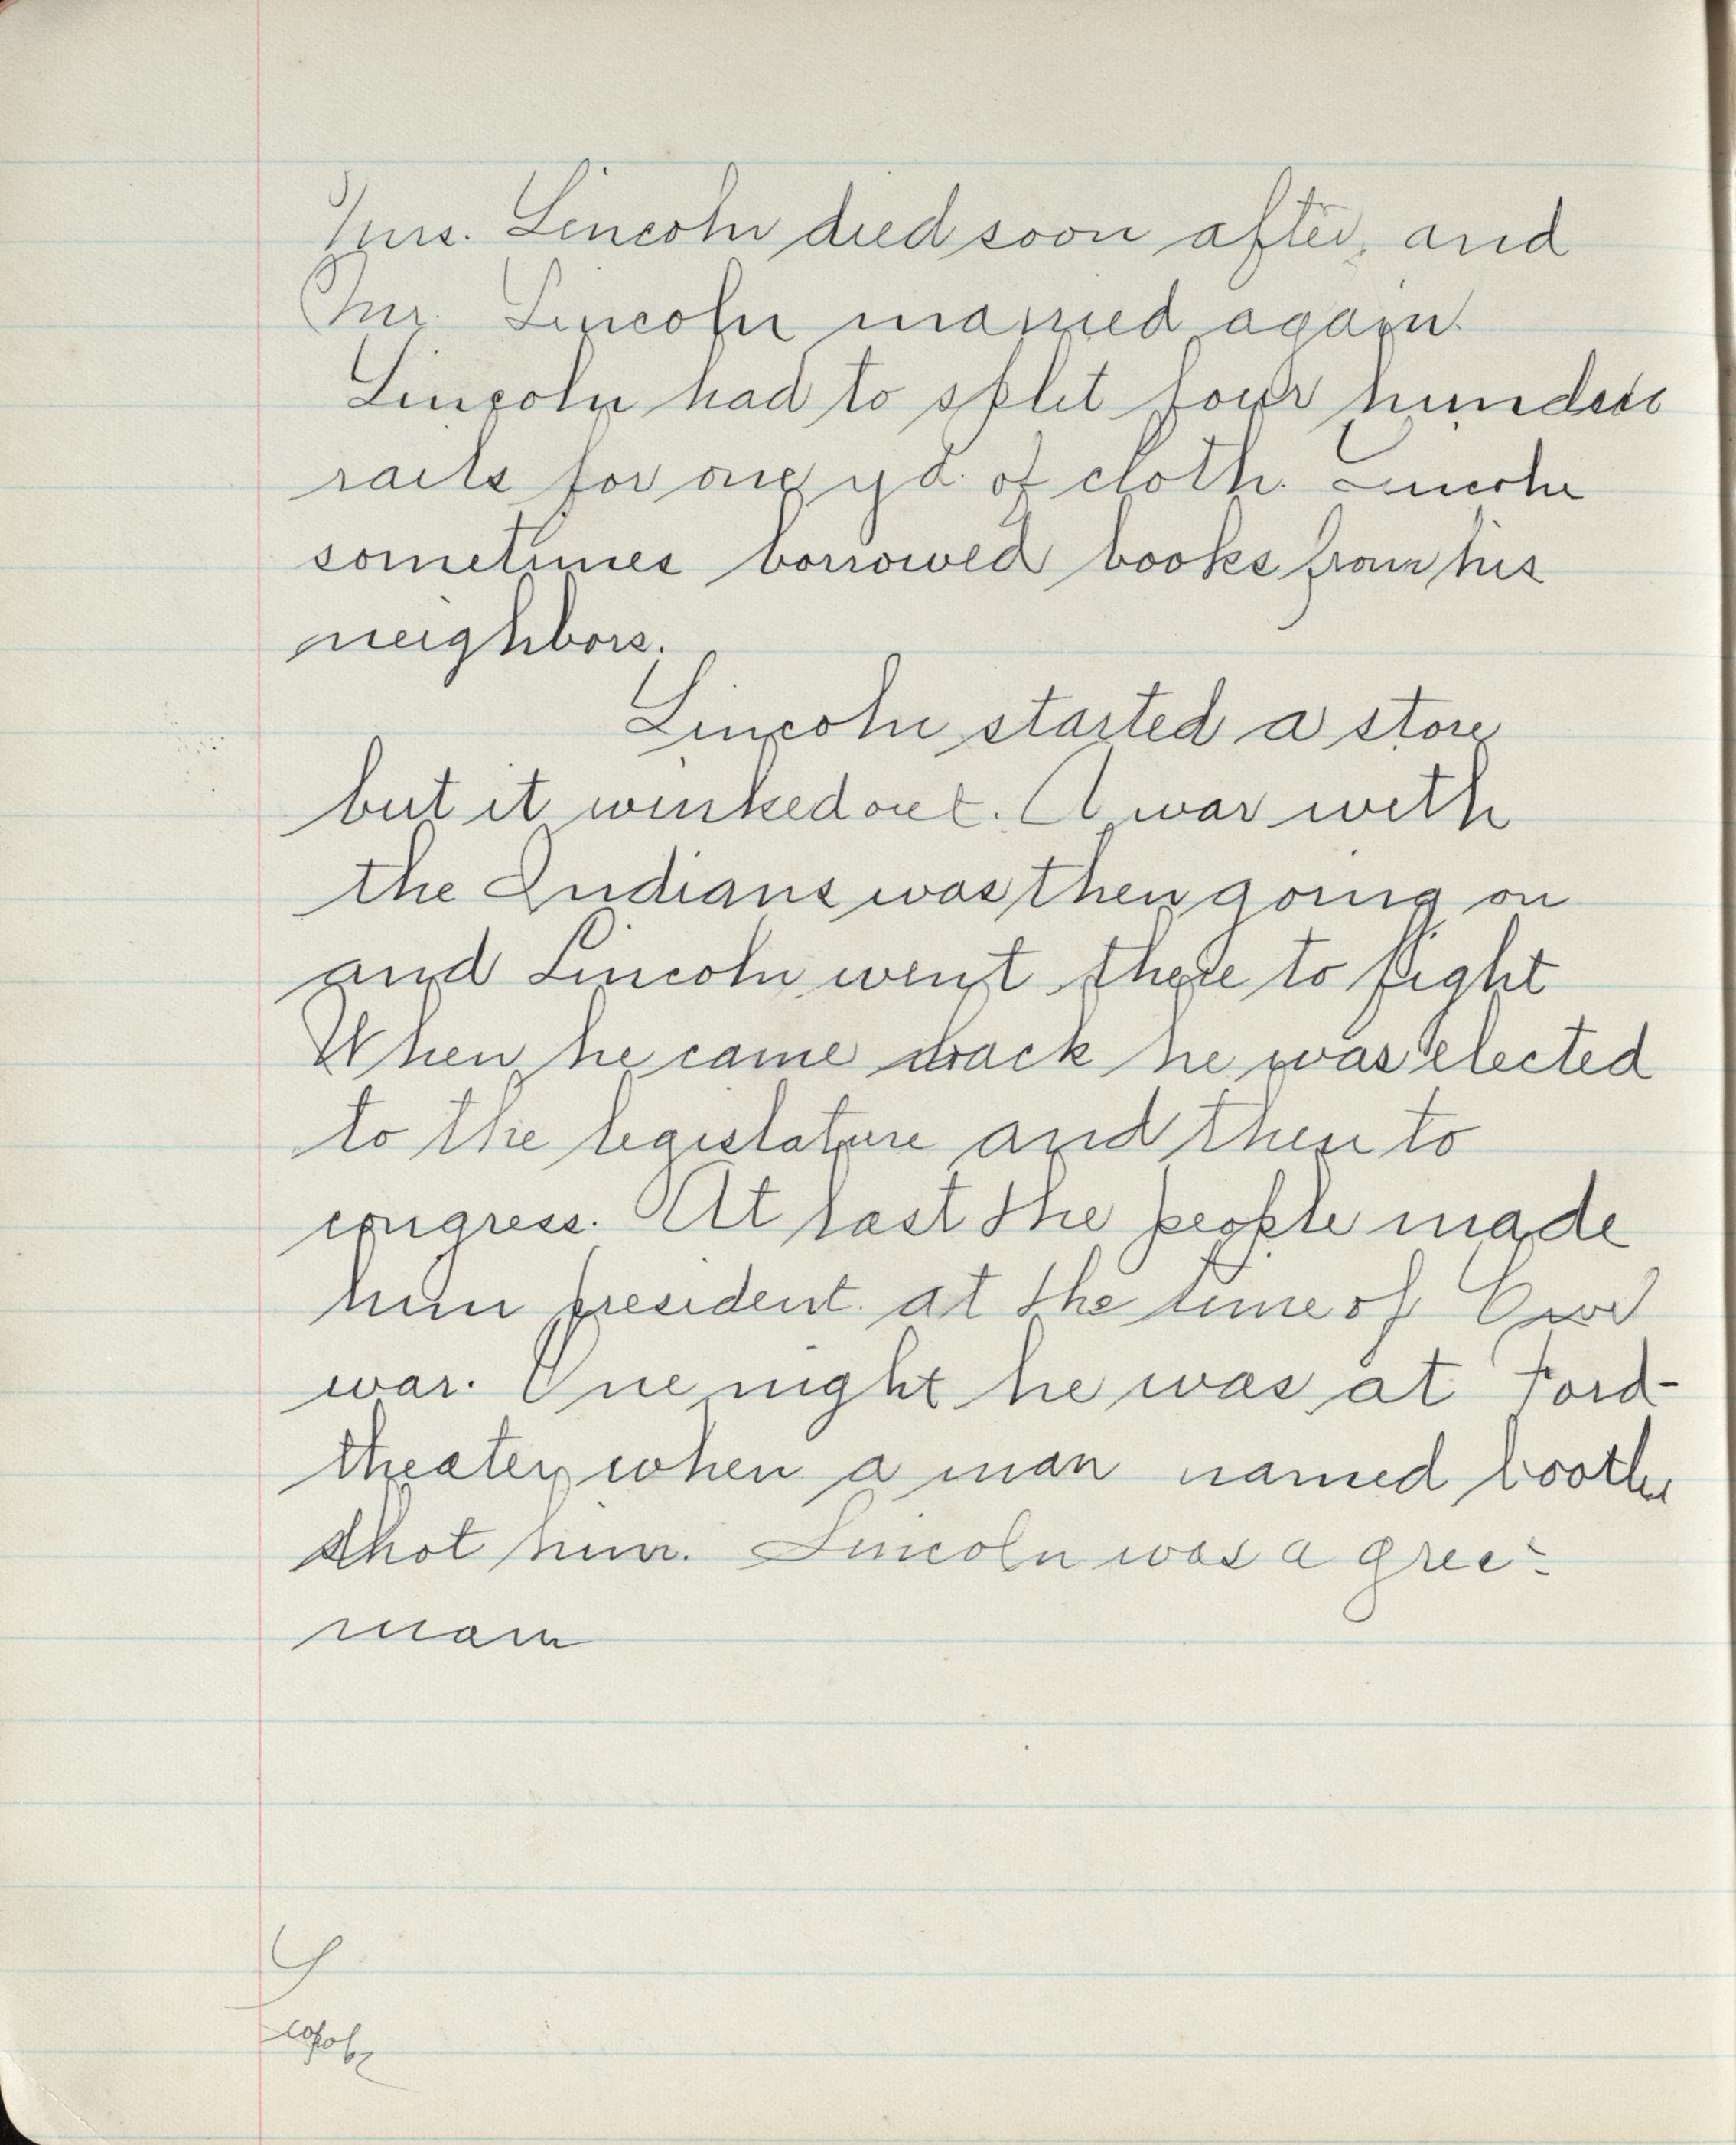 Mrs. Lincoln died soon after, and
Mr. Lincoln married again.
Lincoln had to split four hundred
rails for one yd. of cloth. Lincoln
sometimes borrowed books from his
neighbors.
Lincoln started a store
but it winked out. A war with
the Indians was then going on
and Lincoln went there to fight
When he came back he was elected
to the legislature and then to
congress. At last the people made
him president. at the time of Civil
war. One night he was at Ford-
theater when a man named booth
shot him. Lincoln was a great
man